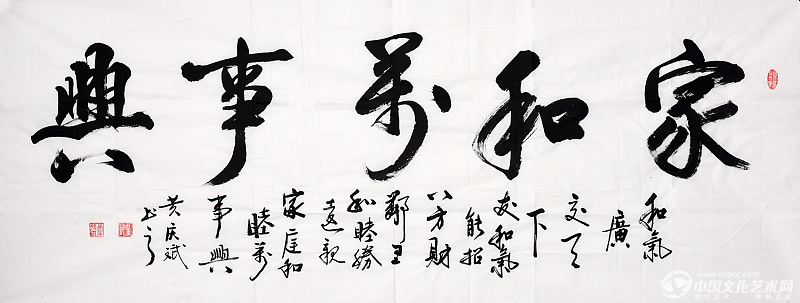 家和萬事興
和氣
廣
交天
下
友和氣
能招
八方財
鄰里
和睦勝
遠親
家庭和
睦萬
事興
黄庆斌
www.orgcc.com
中国文化艺术网